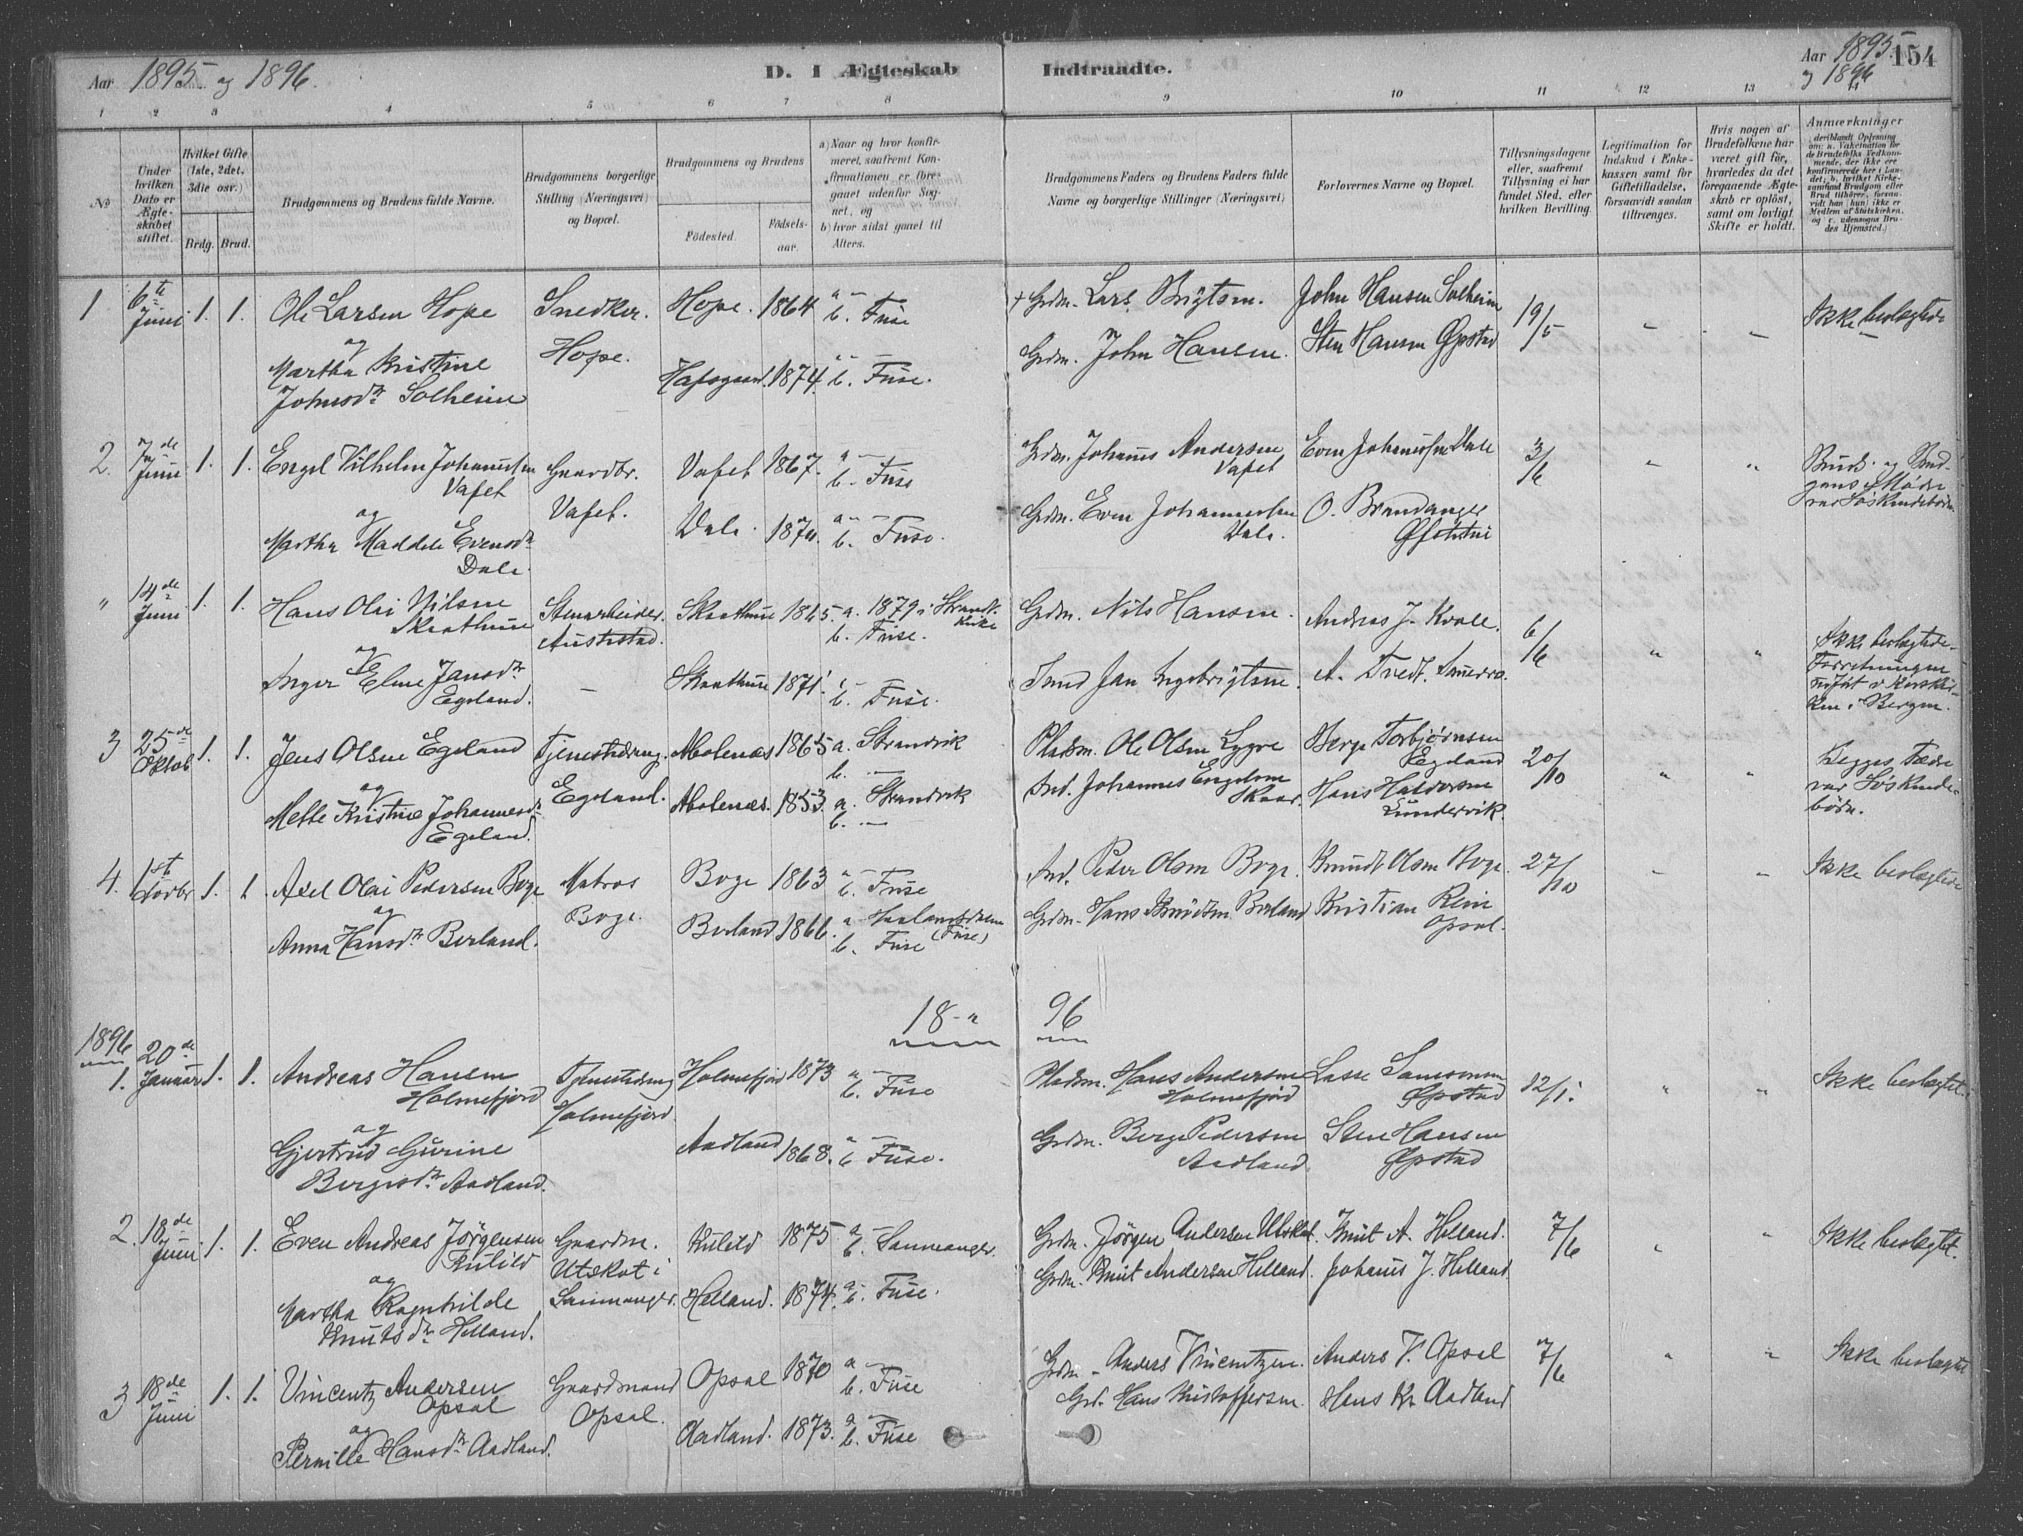 Aar 1895 og 1896.
D. I Ægteskab Indtraadte.
Aar 1895 og 1896
154
1 2 3 4 5 6 7 8 9 10 11 12 13
No
Under hvilken Dato er Ægteskabet stiftet.
Hvilket Gifte (1ste, 2det, 3die osv.)
Brdg. Brud.
Brudgommens og Brudens fulde Navne.
Brudgommens borgerlige Stilling (Næringsvei) og Bopæl.
Brudgommens og Brudens
Fødested.
Fødselsaar.
a) Naar og hvor konfirmeret, saafremt Konfirmationen er foregaaet udenfor Sognet, og
b) hvor sidst gaaet til Alters.
Brudgommens Faders og Brudens Faders fulde Navne og borgerlige Stillinger (Næringsvei)
Forlovernes Navne og Bopæl.
Tillysningsdagene eller, saafremt Tillysning ei har fundet Sted, efter hvilken Bevilling.
Legitimation for Indskud i Enkekassen samt for Giftetilladelse, forsaavidt saadan tiltrænges.
Hvis nogen af Brudefolkene har været gift før, hvorledes da det foregaaende Ægteskab er opløst, samt om lovligt Skifte er holdt.
Anmærkninger
1 6te Juni 1. 1. Ole Larsen Hope Snedker. Hope. 1864 a - b. Fuse + Grdm. Lars Brigtsen. John Hansen Solheim 19/5 - - Ikke beslægtede
og
Martha Kristine Hope. Hafsgaard. 1874. a - b. Fuse. Grdm. John Hansen. Sten Hansen Øpstad
Johnsdr Solheim
2. 7de Juni 1. 1. Engel Vilhelm Johannesen Gaardbr. Vafet 1867. a - b. Fuse Grdm. Johannes Andersen Even Johannessen Dale 3/6 - "
Vafet Vafet. Vafet
og
Martha Maddele Evensdr Dale. 1874. a - b. Fuse. Grdm. Even Johannessen O. Brandanger
Dale. Dale.
" 14de Juni 1. 1. Hans Olai Nilsen Stenarbeider Skaathun 1865. a. 1879 i Strandv. Kirke Grdm. Nils Hansen. Andreas J. Kvale. 6/6 " " Ikke beslægtede.
Skaathun b. Fuse. Forretningen
og udført v. Korskirken i Bergen.
Inger Eline Jansdr - Skaathun 1871. b. Fuse. Jan Ingebrigtsen. A. Tvedt.
Egeland.
3 25de Oktob 1. 1. Jens Olsen Egeland Tjenestedreng. 1865 a. Strandvik Pladsm. Ole Olsen Lygre Berge Torbjørnsen 20/10 " " Begges Fædre
Egeland. b. - Egeland var Søskende-
og børn.
Mette Kristine Johannesdr 1853. a. Strandvik Ind. Johannes Engelsen Hans Haldorsen
Egeland. b. - Skaar. Lundervik.
4. 1st Novbr 1. 1. Axel Olai Pedersen Boge Matros Boge 1863 a - b. Fuse Ind. Peder Olsen Boge. Knudt Olsen Boge. 27/10 - - Ikke beslægtede
og Boge.
Anna Hansdr Berland. Berland 1866. a. (Fuse) b. Fuse Grdm. Hans Berland Kristian Rein
Opsal.
18 96
1896
1. 20de Januar 1. 1. Andreas Hansen Tjenestedreng Holmefjord 1873 a - b. Fuse Pladsm. Hans Andersen Lasse Samsonsen 12/1. " " Ikke beslægtet.
Holmefjord Holmefjord Holmefjord Øpstad
og
Gjertrud Gurine Aadland 1868. a - b Fuse. Grdm. Berge Pedersen Sten Hansen
Bergesdr. Aadland. Aadland. Øpstad
2. 18de Juni 1. 1. Even Andreas Jørgensen Gaardm. Kulild 1875 a - b. Sammanger. Grdm. Jørgen Andersen Utskot. Knut A. Helland. 7/6 " " Ikke beslægtet.
Kulild Utskot i
og Sammanger.
Martha Ragnhilde Helland. 1874. a - b. Fuse. Grdm. Knut Andersen Helland. Johannes J. Helland
Knutsdr Helland.
3 18de Juni 1. 1. Vincentz Andersen Gaardmand Opsal 1870 a - b. Fuse Grdm. Anders Vincentzen. Anders V. Opsal 7/6 " " Ikke beslægtet
Opsal Opsal.
og
Pernille Hansdr Aadland. Aadland. 1873. a - b. Fuse Grd. Hans Kristoffersen. Hans Kr. Aadland